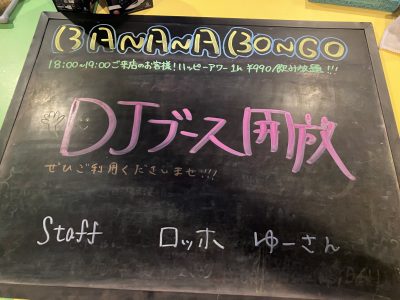 BANANA BONGO
18:00~19:00ご来店のお客様!ハッピーアワー1h ¥990飲み放題!!!
DJブース開放
ぜひご利用くださいませ!!!
Staff ロッホ ゆーさん